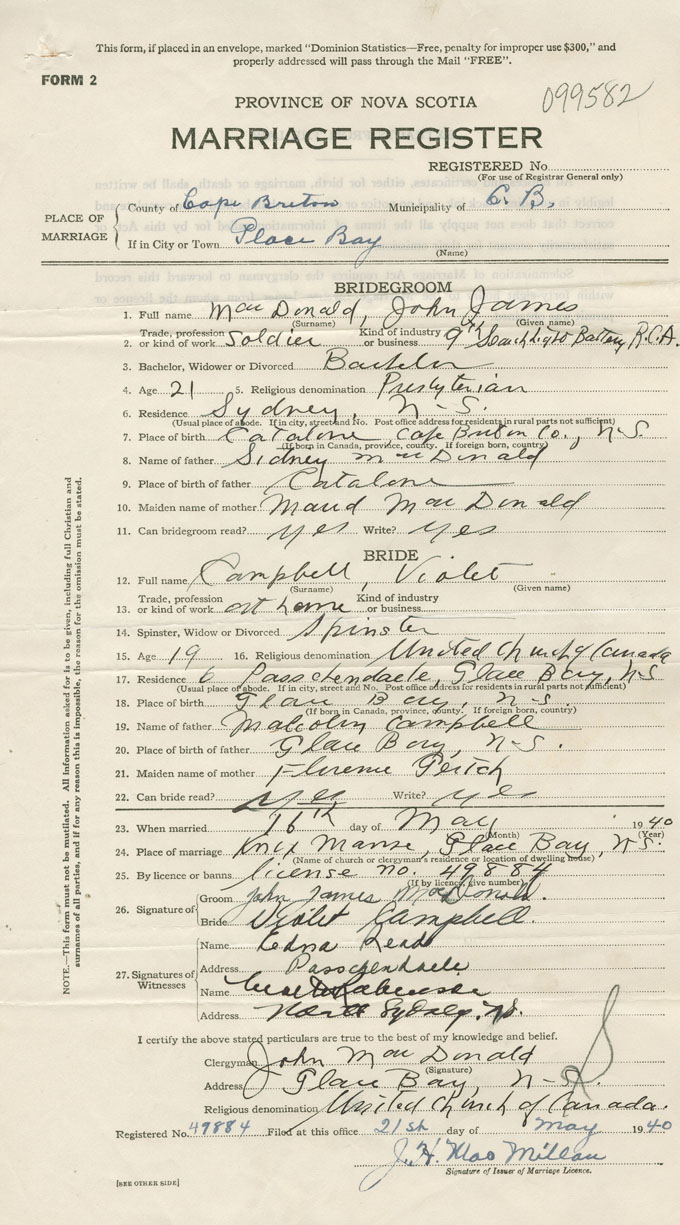 This form, if placed in an envelope, marked "Dominion Statistics—Free, penalty for improper use $300," and
properly addressed will pass through the Mail "FREE".
FORM 2
099582
PROVINCE OF NOVA SCOTIA
MARRIAGE REGISTER
REGISTERED No.
(For use of Registrar General only)
PLACE OF MARRIAGE
County of Cape Breton Municipality of C. B.
If in City or Town Glace Bay
(Name)
BRIDEGROOM
1. Full name MacDonald, John James
(Surname) (Given name)
2. Trade, profession or kind of work Soldier Kind of industry or business 9th Searchlight Battery R.C.A.
3. Bachelor, Widower or Divorced Bachelor
4. Age 21 5. Religious denomination Presbyterian
6. Residence Sydney, N-S.
(Usual place of abode. If in city, street and No. Post office address for residents in rural parts not sufficient)
7. Place of birth Catalone Cape Breton Co., N-S.
(If born in Canada, province, county. If foreign born, country)
8. Name of father Sidney MacDonald
9. Place of birth of father Catalone
10. Maiden name of mother Maud MacDonald
11. Can bridegroom read? yes Write? yes
BRIDE
12. Full name Campbell, Violet
(Surname) (Given name)
13. Trade, profession or kind of work at home Kind of industry or business
14. Spinster, Widow or Divorced Spinster
15. Age 19 16. Religious denomination United Church of Canada
17. Residence 6 Passchendaele, Glace Bay, N-S
(Usual place of abode. If in city, street and No. Post office address for residents in rural parts not sufficient)
18. Place of birth Glace Bay, N-S.
(If born in Canada, province, county. If foreign born, country)
19. Name of father Malcolm Campbell
20. Place of birth of father Glace Bay, N-S.
21. Maiden name of mother Florence
22. Can bride read? yes Write? yes
23. When married 16th day of May 1940
(Month) (Year)
24. Place of marriage Knox Manse, Glace Bay, N-S.
(Name of church or clergyman's residence or location of dwelling house)
25. By licence or banns license no. 49884
(If by licence, give number)
26. Signature of
Groom John James MacDonald.
Bride Violet Campbell.
27. Signatures of Witnesses
Name Edna
Address Passchendaele
Name
Address North Sydney. N.S.
I certify the above stated particulars are true to the best of my knowledge and belief.
Clergyman John MacDonald
(Signature)
Address Glace Bay, N-S.
Religious denomination United Church of Canada.
Registered No. 49884 Filed at this office 21st day of May 1940
J. H. MacMillan
Signature of Issuer of Marriage Licence.
[SEE OTHER SIDE]
NOTE.—This form must not be mutilated. All Information asked for is to be given, including full Christian and
surnames of all parties, and if for any reason this is impossible, the reason for the omission must be stated.